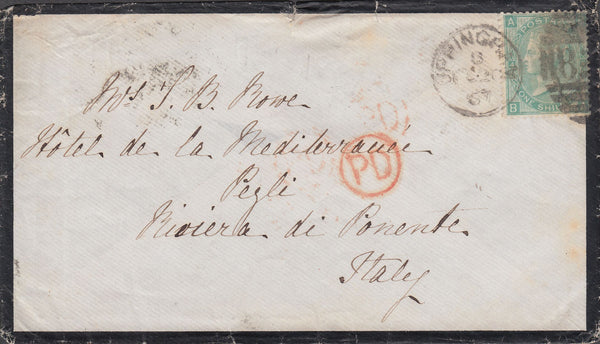 Mrs J. B. Rowe
Hôtel de la Mediterranée
Pegli
Riviera di Ponente
Italy
PD
UPPINGHAM
A
POSTAGE
B
ONE SHIL